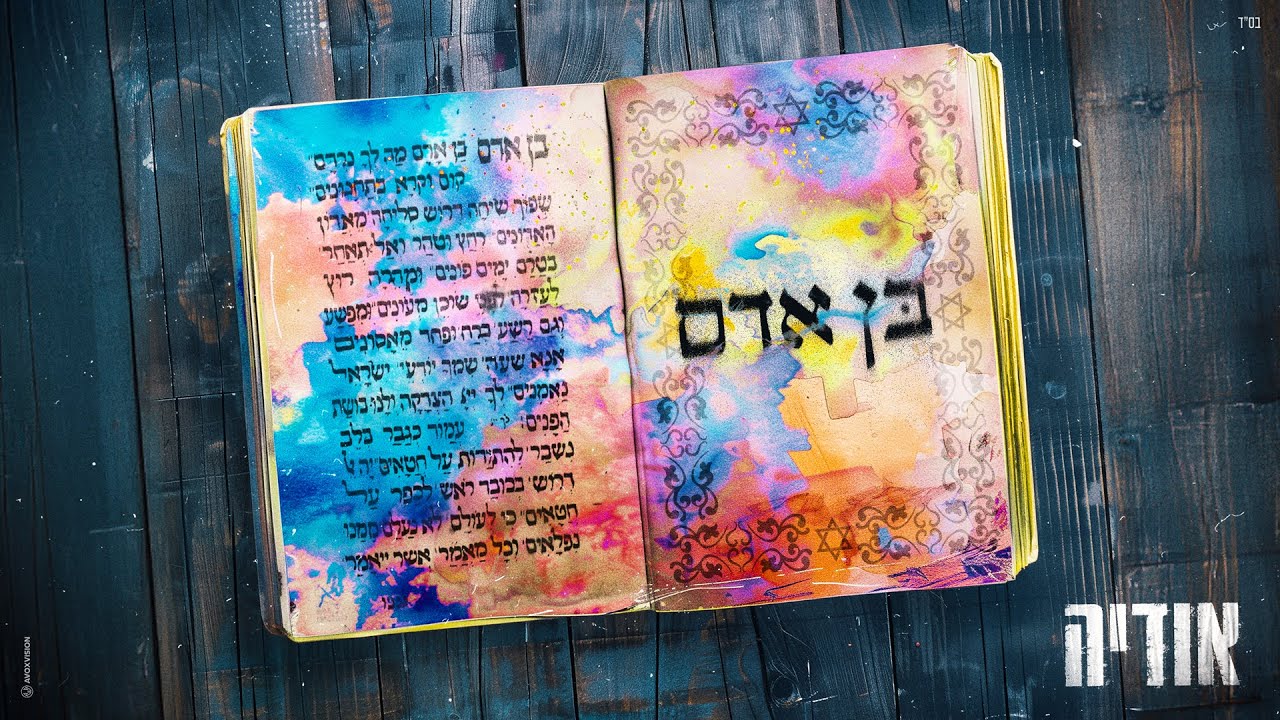 בס"ד
בן אדם
בן אדם בן אדם מה לך נרדם
קום וקרא בתחנונים
שפוך שיחה דרוש סליחה מאדון
האדונים רחץ וטהר ואל תאחר
בטרם ימים פונים ומהרה רוץ
לעזרה לפני שוכן מעונים ומפשע
וגם רשע ברח ופחד מאסונים
אנא שעה שמך יודעי ישראל
נאמנים לך ייי הצדקה ולנו בושת
הפנים עמוד כגבר בלב
נשבר להתודות על חטאים יה
דרוש בכובד ראש לכפר על
חטאים כי לעולם לא נעלם ממנו
נפלאים וכל מאמר אשר ייאמר
אודיה
AVOXVISION